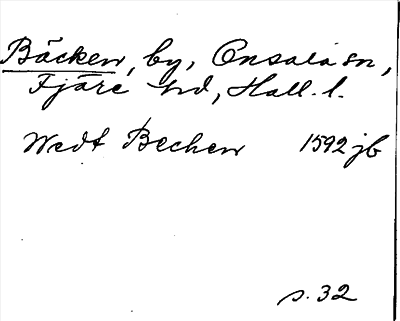 Bäcken, by, Onsala sn,
Fjäre hd, Hall. l.
Wedt Bechen 1592 jb
s. 32